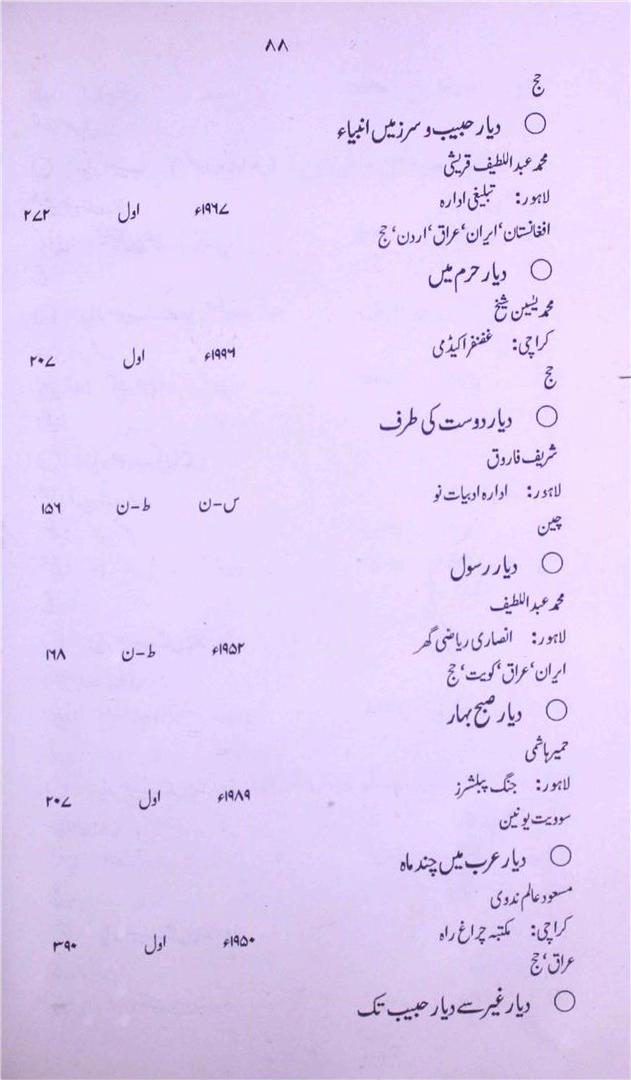 ۸۸
حج
○ دیار حبیب و سرزمیں انبیاء
محمد عبد اللطیف قریشی
لاہور: تبلیغی ادارہ ۱۹۶۷ء اول ۲۷۲
افغانستان‘ ایران‘ عراق‘ اردن‘ حج
○ دیار حرم میں
محمد یٰسین شیخ
کراچی: غضنفر اکیڈمی ۱۹۹۶ء اول ۲۰۷
حج
○ دیار دوست کی طرف
شریف فاروق
لاہور: ادارہ ادبیات نو س-ن ط-ن ۱۵۶
چین
○ دیار رسول
محمد عبد اللطیف
لاہور: انصاری ریاضی گھر ۱۹۵۲ء ط-ن ۱۶۸
ایران‘ عراق‘ کویت‘ حج
○ دیار صبح بہار
حمیر ہاشمی
لاہور: جنگ پبلشرز ۱۹۸۹ء اول ۲۰۷
سوویت یونین
○ دیار عرب میں چند ماہ
مسعود عالم ندوی
کراچی: مکتبہ چراغ راہ ۱۹۵۰ء اول ۳۹۰
عراق‘ حج
○ دیار غیر سے دیار حبیب تک